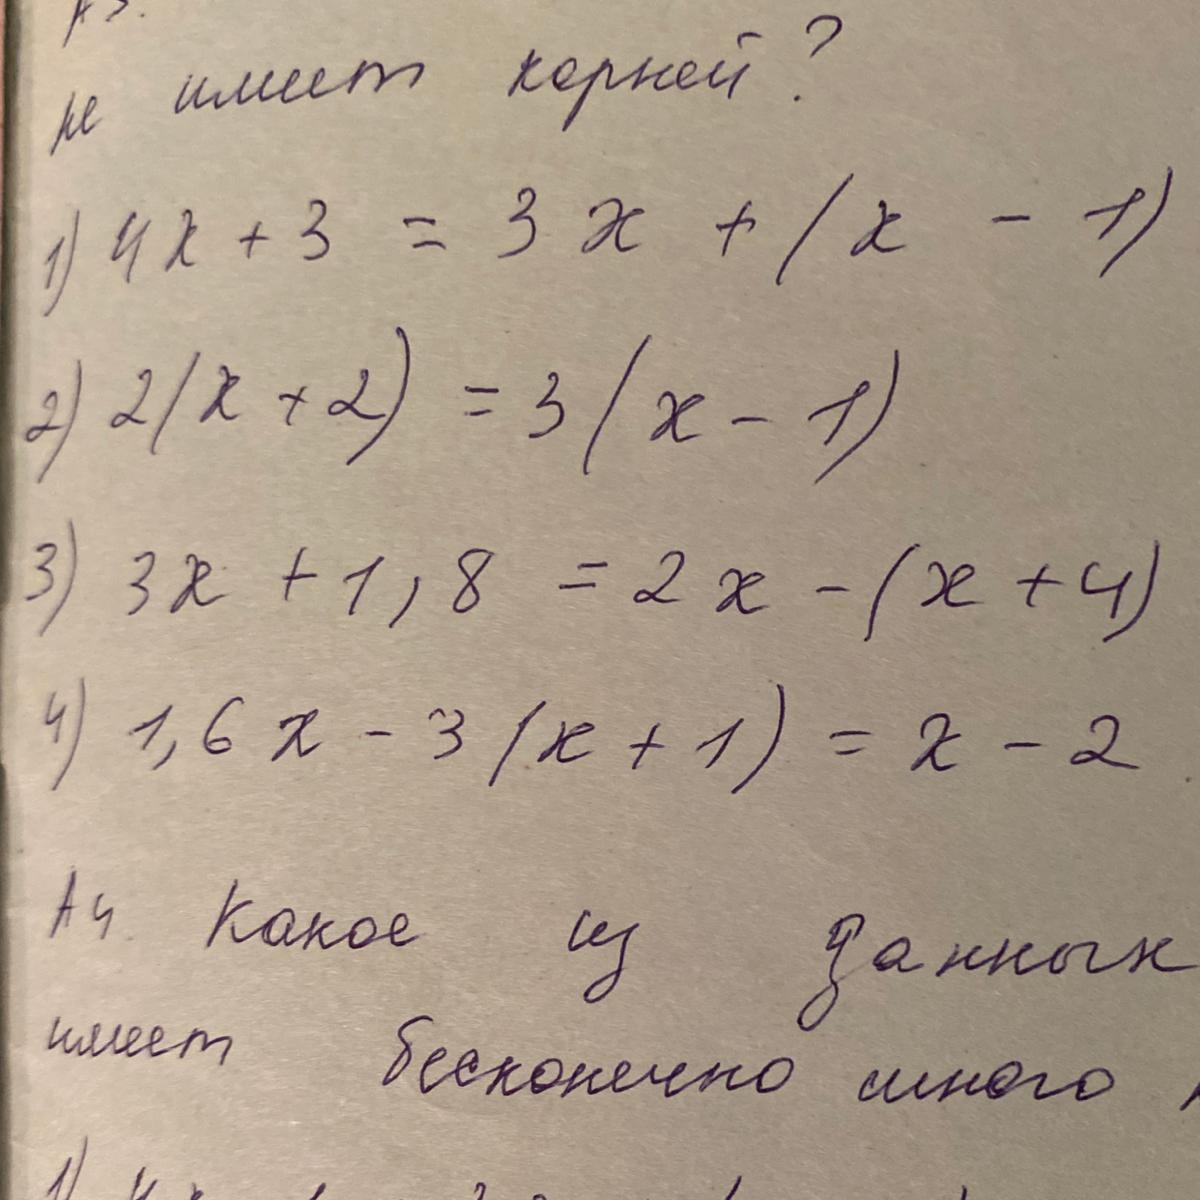 А3.
не имеет корней?
1) 4x + 3 = 3x + (x - 1)
2) 2(x + 2) = 3(x - 1)
3) 3x + 1,8 = 2x - (x + 4)
4) 1,6x - 3(x + 1) = x - 2
А4. Какое из данных
имеет бесконечно много
1)